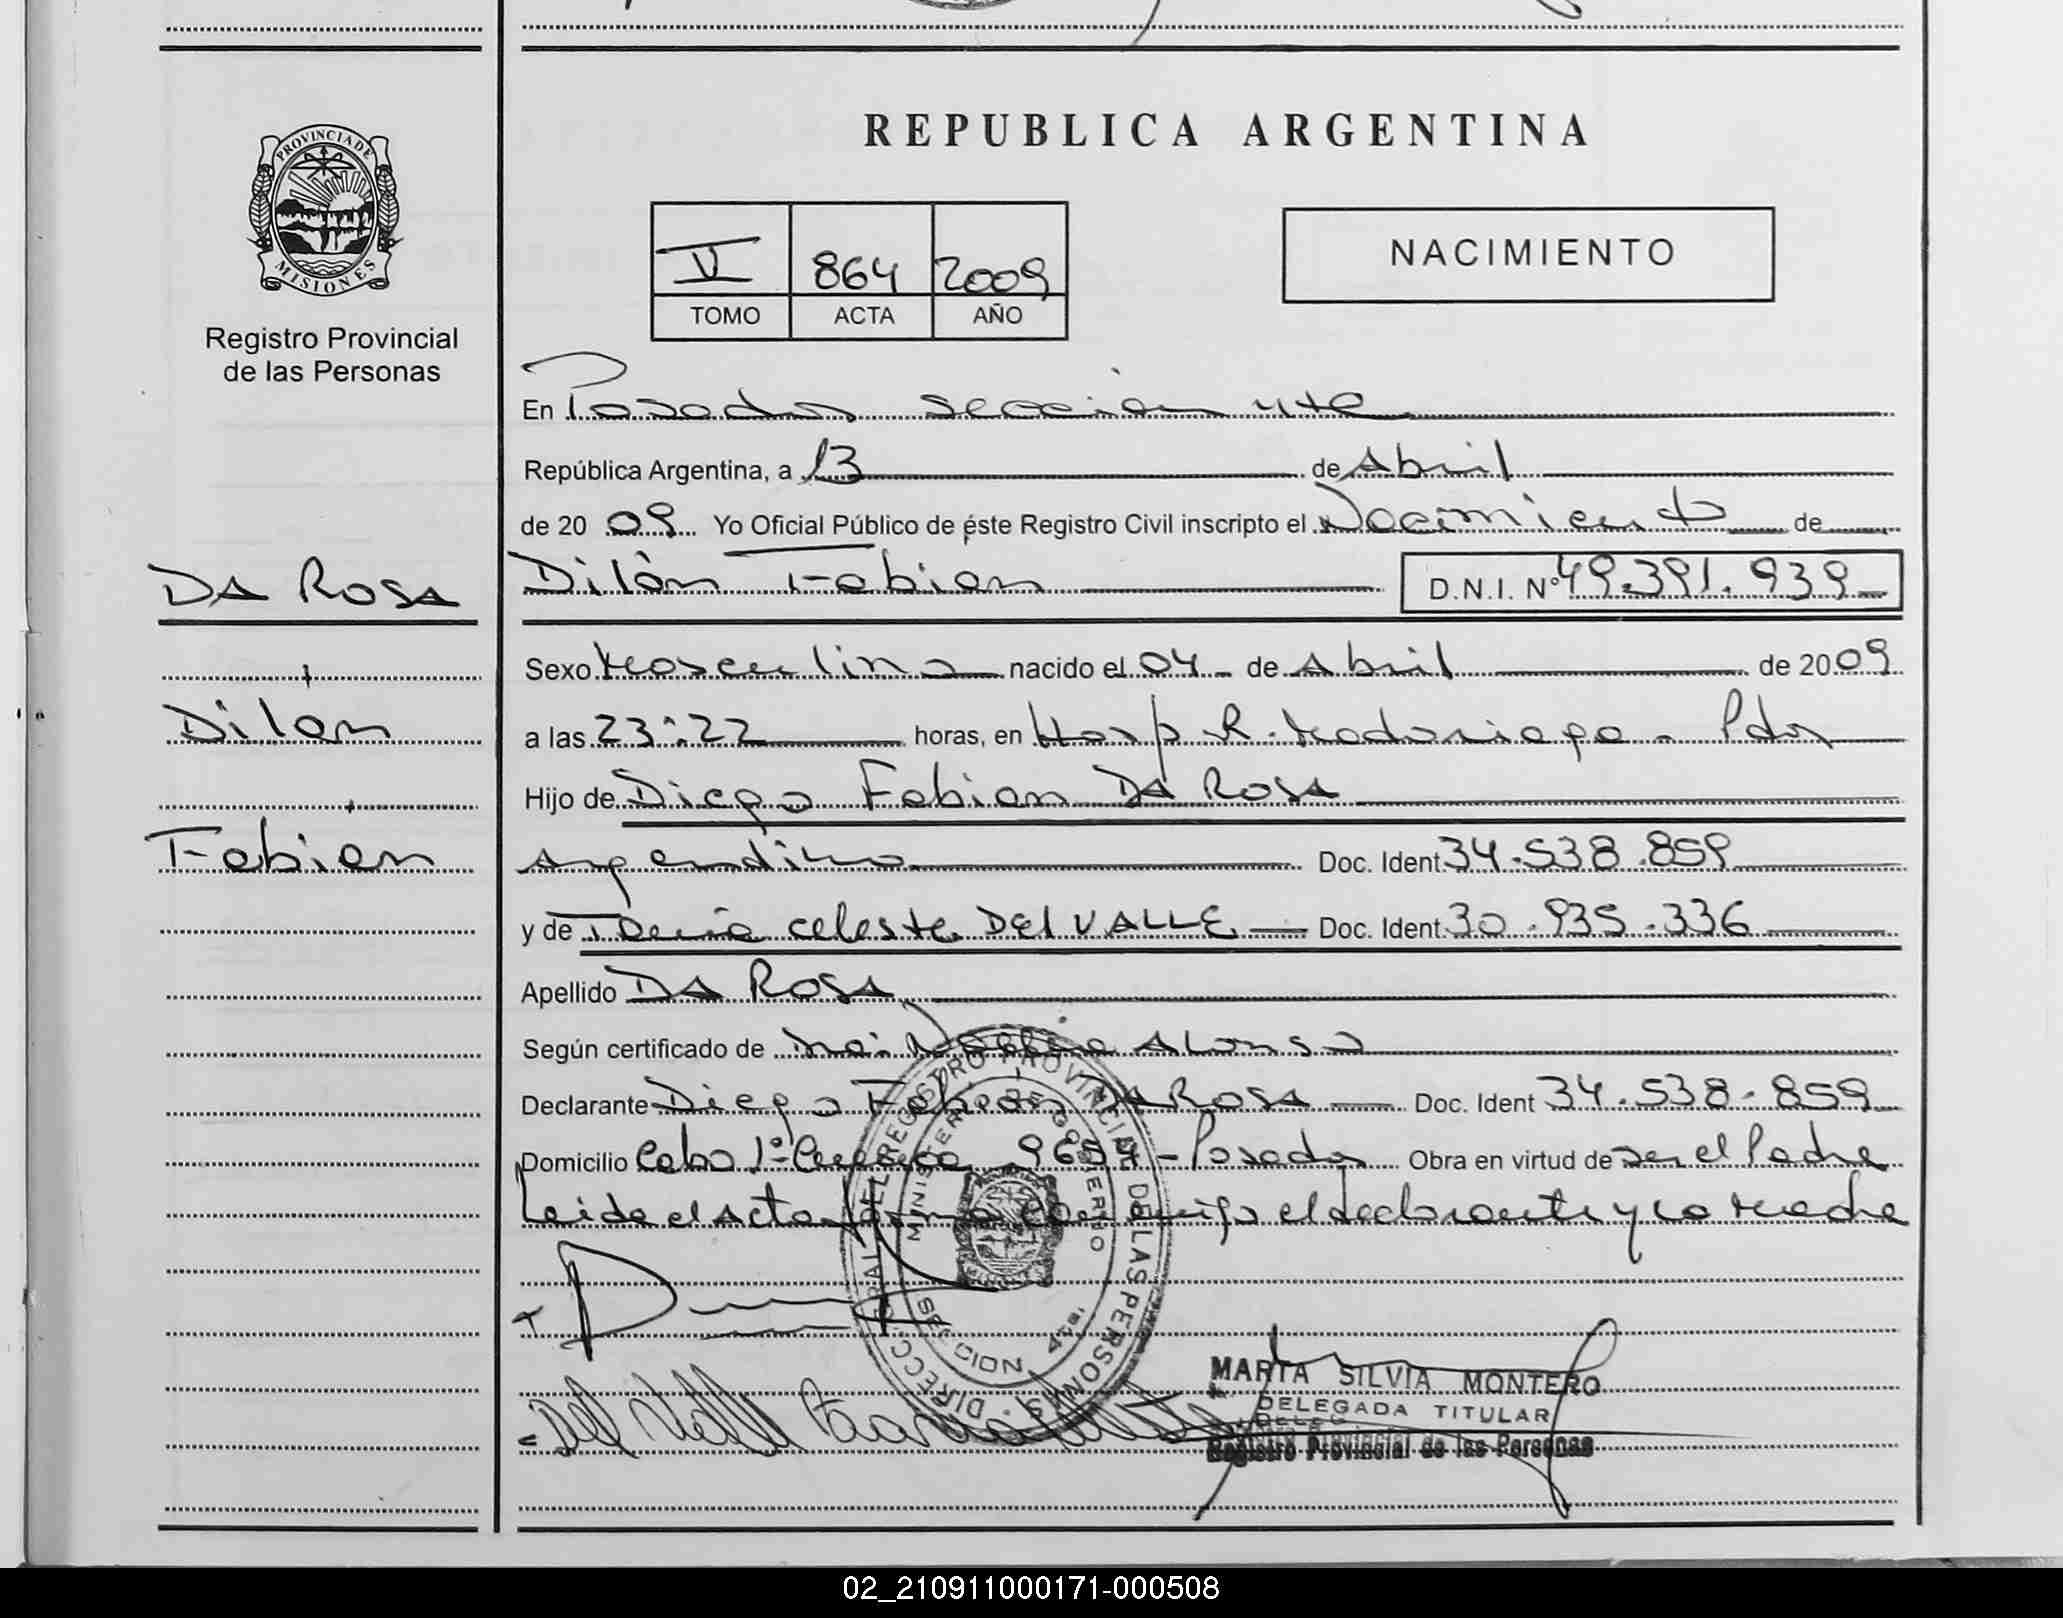 REPUBLICA ARGENTINA
PROVINCIA DE
MISIONES
Registro Provincial
de las Personas
V 864 2009
TOMO ACTA AÑO
NACIMIENTO
En Posadas sección 4ta
República Argentina, a 13 de Abril
de 2009 Yo Oficial Público de éste Registro Civil inscripto el Nacimiento de
DA ROSA
Dilan
Fabián
Dilán Fabian D.N.I. Nº 49.391.939
Sexo Masculino nacido el 04 de Abril de 2009
a las 23:22 horas, en Hosp R. Madariaga - Pdas
Hijo de Diego Fabian DA ROSA
Argentino Doc. Ident. 34.538.859
y de Tania Celeste DEL VALLE Doc. Ident. 30.935.336
Apellido DA ROSA
Según certificado de Alonso
Declarante Diego Fabián DA ROSA Doc. Ident 34.538.859
Domicilio Cabo 1º - Posadas Obra en virtud de ser el Padre
Leida el Acta firma conmigo el declarante y la Madre
DIRECC. GRAL DEL REGISTRO PROVINCIAL DE LAS PERSONAS
MINISTERIO DE GOBIERNO
SECCION 4ta.
Del Valle
MARTA SILVIA MONTERO
DELEGADA TITULAR
Registro Provincial de las Personas
02_210911000171-000508